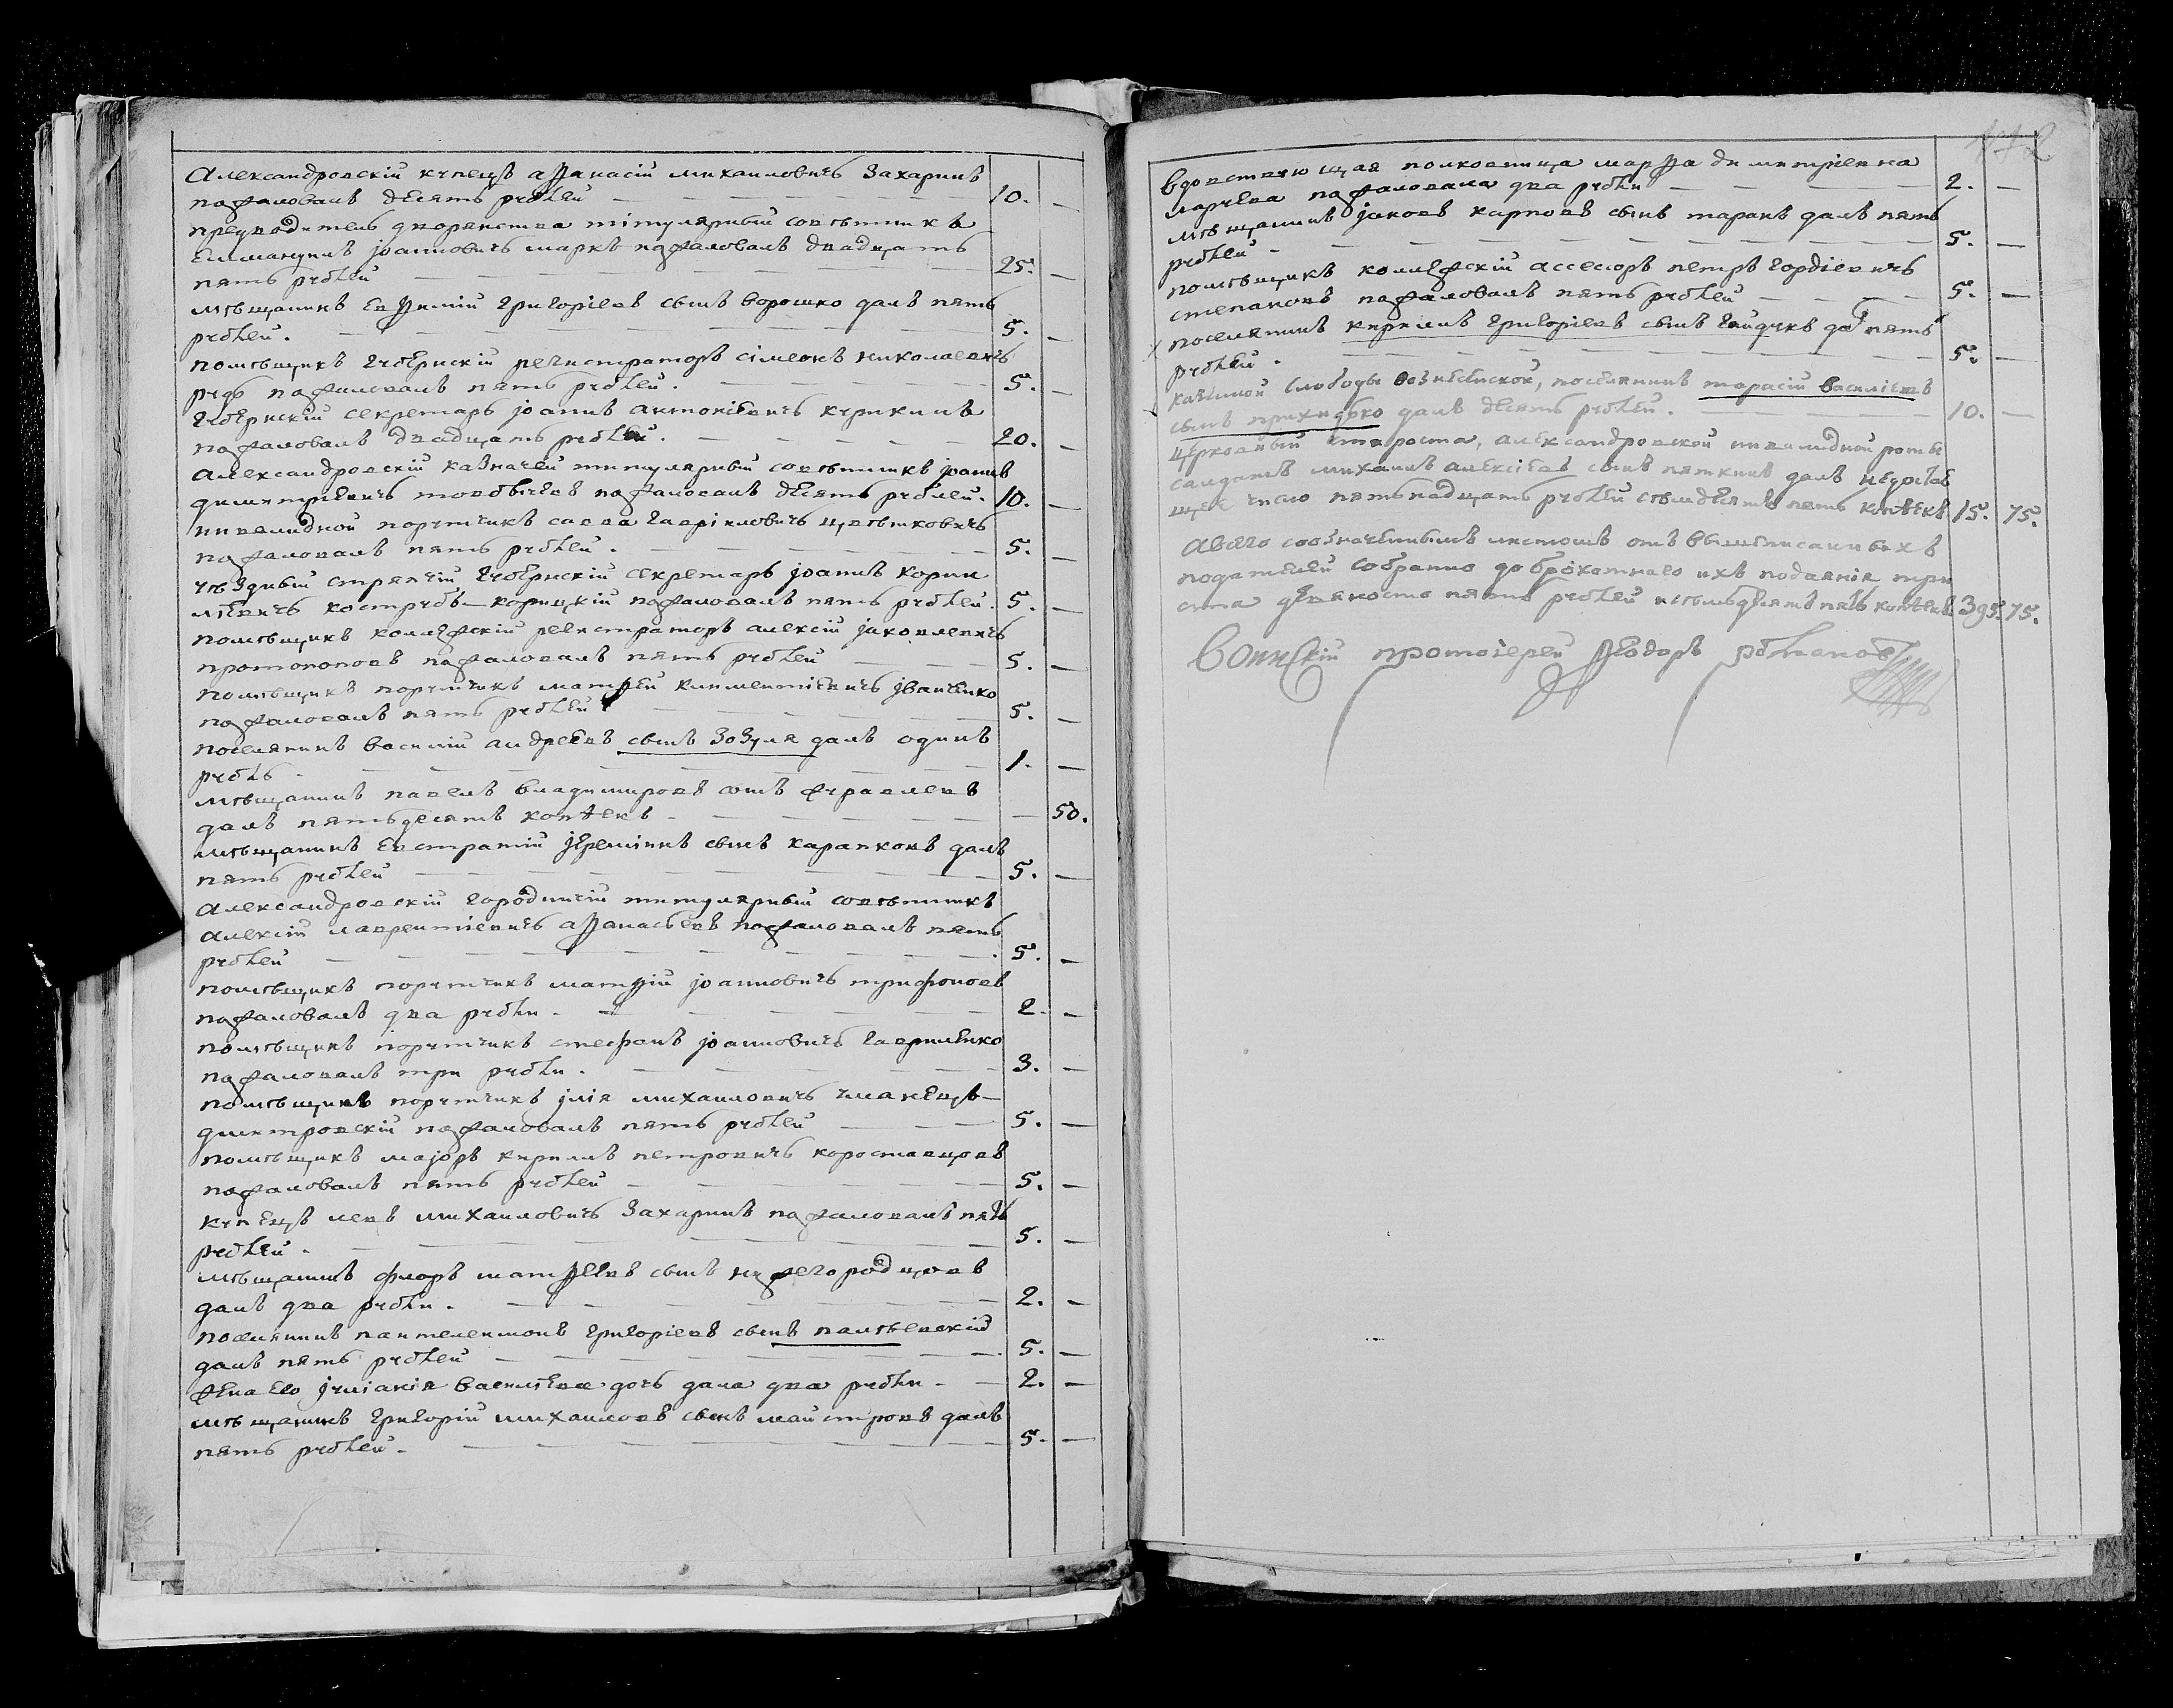 Александровскій купецъ Аѳанасій Михаиловичъ Захаринъ
пожаловалъ десять рублей — 10. —
предводитель дворянства титулярный совѣтникъ
Еммануилъ Іоанновичъ Маркъ пожаловалъ двадцать
пять рублей — 25. —
мѣщанинъ Евѳимій Григоріевъ сынъ Ворошко далъ пять
рублей. — 5. —
помѣщикъ губернскій регистраторъ Сімеонъ Николаевичъ
пожаловалъ пять рублей. — 5. —
Губернскій секретарь Іоаннъ Антоніевичъ Куркинъ
пожаловалъ двадцать рублей. — 20. —
Александровскій казначей титулярный совѣтникъ Іоаннъ
Димитріевичъ Товбычевъ пожаловалъ десять рублей. 10. —
инвалидной поручикъ Савва Гавріиловичъ Цвѣтковичъ
пожаловалъ пять рублей. — 5. —
уѣздный стряпчій губернскій секретарь Іоаннъ Корни
лѣевичъ Кострубъ-Корицкій пожаловалъ пять рублей. 5. —
помѣщикъ коллежскій регистраторъ Алексій Іаковлевичъ
Протопоповъ пожаловалъ пять рублей — 5. —
помѣщикъ поручикъ Матѳей Климентіевичъ Іванченко
пожаловалъ пять рублей — 5. —
поселянинъ Василій Андреевъ сынъ Зозуля далъ одинъ
рубль — 1. —
мѣщанинъ Павелъ Владимировъ сынъ Журавлевъ
далъ пятьдесятъ копѣекъ — 50.
мѣщанинъ Евстратій Іереміинъ сынъ Карапковъ далъ
пять рублей — 5. —
Александровскій городничій титулярный совѣтникъ
Алексій Лаврентіевичъ Аѳанасьевъ пожаловалъ пять
рублей — 5. —
помѣщикъ поручикъ Матѳій Іоанновичъ Трифоновъ
пожаловалъ два рубли. — 2. —
помѣщикъ поручикъ Стефанъ Іоанновичъ Гавриленко
пожаловалъ три рубли. — 3. —
помѣщикъ поручикъ Ілія Михаиловичъ Гманецъ-
Дмитровскій пожаловалъ пять рублей — 5. —
помѣщикъ маіоръ Кирилъ Петровичъ Коростовцовъ
пожаловалъ пять рублей — 5. —
купецъ Левъ Михаиловичъ Захаринъ пожаловалъ пять
рублей. — 5. —
мѣщанинъ Флоръ Матѳеевъ сынъ Нижегородцовъ
далъ два рубли. — 2. —
поселянинъ Пантелеимонъ Григоріевъ сынъ Палѣевскій
далъ пять рублей — 5. —
жена его Іуліанія Василіева дочь дала два рубли. — 2. —
мѣщанинъ Григорій Михаиловъ сынъ Майстровъ далъ
пять рублей. — 5. —
вдовствующая полковница Марѳа Димитріевна
Ларчева пожаловала два рубли — 2. —
мѣщанинъ Іаковъ Карповъ сынъ Таранъ далъ пять
рублей — 5. —
помѣщикъ коллежскій ассесоръ Петръ Гордіевичъ
Степановъ пожаловалъ пять рублей — 5. —
поселянинъ Кирилъ Григоріевъ сынъ Гайдукъ далъ пять
рублей. — 5. —
казенной слободы Вознесенской, поселянинъ Тарасій Василіевъ
сынъ Прихидько далъ десять рублей. — 10. —
церковный староста, Александровской инвалидной роты
салдатъ Михаилъ Алексіевъ сынъ Пяткинъ далъ недостаю
щее число пятьнадцать рублей семьдесятъ пять копѣекъ 15. 75.
А всего собзначеннымъ листомъ отъ вышеписанныхъ
подателей собранно доброхотнаго ихъ подаянія три
ста девяносто пять рублей и семьдесятъ пять копѣекъ 395. 75.
Воинскій протоіерей Ѳеодоръ Романовъ